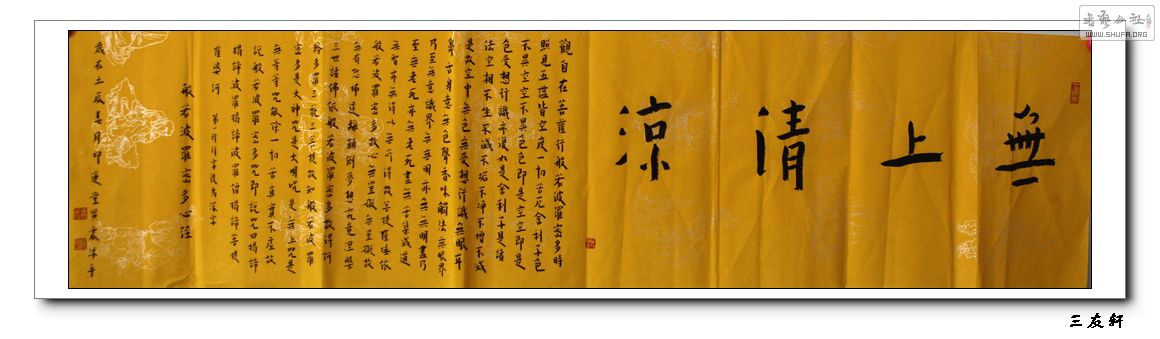 無上清涼
觀自在菩薩行般若波羅密多時
照見五蘊皆空度一切苦厄舍利子色
不異空空不異色色即是空空即是
色受想行識亦復如是舍利子是諸
法空相不生不滅不垢不淨不增不減
是故空中無色無受想行識無眼耳
鼻舌身意無色聲香味觸法無眼界
乃至無意識界無無明亦無無明盡乃
至無老死亦無老死盡無苦集滅道
無智亦無得以無所得故菩提薩埵依
般若波羅密多故心無罣礙無罣礙故
無有恐怖遠離顛倒夢想究竟涅槃
三世諸佛依般若波羅密多故得阿
耨多羅三藐三菩提故知般若波羅
密多是大神咒是大明咒是無上咒是
無等等咒能除一切苦真實不虛故
說般若波羅密多咒即說咒曰揭諦
揭諦波羅揭諦波羅僧揭諦菩提
薩婆訶 第一行行字後為深字
般若波羅密多心經
歲在
書藝公社
WWW.SHUFA.ORG
三友軒